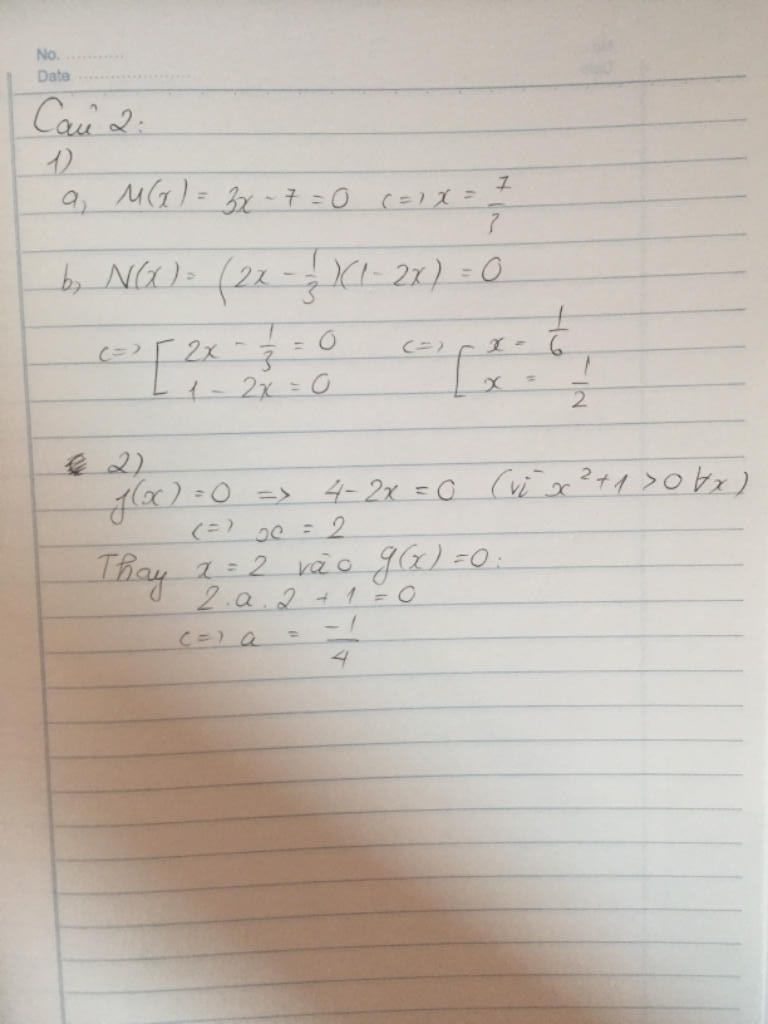 No. ............
Date ........................
Câu 2:
1)
a, M(x) = 3x - 7 = 0 <=> x = 7/3
b, N(x) = (2x - 1/3)(1 - 2x) = 0
<=> [ 2x - 1/3 = 0 <=> [ x = 1/6
1 - 2x = 0 x = 1/2
2)
f(x) = 0 => 4 - 2x = 0 (vì x² + 1 > 0 ∀x)
<=> x = 2
Thay x = 2 vào g(x) = 0:
2.a.2 + 1 = 0
<=> a = -1/4